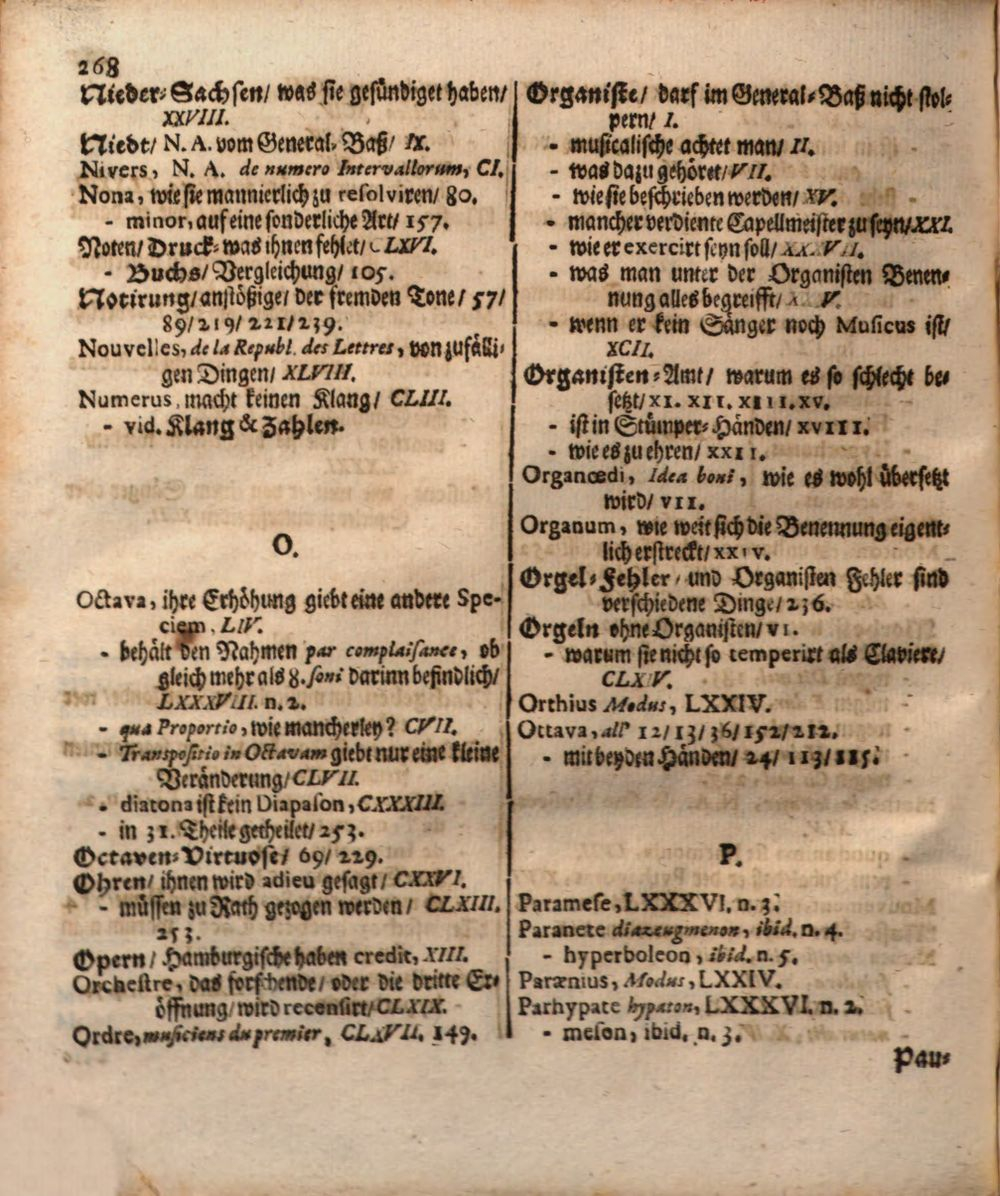 268
Nieder-Sachsen/ was sie gesündiget haben/
XXVIII.
Niedt/ N. A. vom General-Baß/ IX.
Nivers, N. A. de numero Intervallorum, CI.
Nona, wie sie mannierlich zu resolviren/ 80.
- minor, auf eine sonderliche Art/ 157.
Noten/ Druck- was ihnen fehlet/ CLXVI.
- Buchs/ Vergleichung/ 105.
Notirung/ anstößige/ der fremden Tone/ 57/
89/ 219/ 221/ 239.
Nouvelles, de la Republ. des Lettres, von zufälli-
gen Dingen/ XLVIII.
Numerus macht keinen Klang/ CLIII.
- vid. Klang & Zahlen.
O.
Octava, ihre Erhöhung giebt eine andere Spe-
ciem, LIV.
- behält den Nahmen par complaisance, ob
gleich mehr als 8. soni darinn befindlich/
LXXXVIII. n. 2.
- qua Proportio, wie mancherley? CVII.
- Transpositio in Octavam giebt nur eine kleine
Veränderung/ CLVII.
- diatona ist kein Diapason, CXXXIII.
- in 31. Theile getheilet/ 253.
Octaven-Virtuose/ 69/ 229.
Ohren/ ihnen wird adieu gesagt/ CXXVI.
- müssen zu Rath gezogen werden/ CLXIII.
253.
Opern/ Hamburgische haben credit, XIII.
Orchestre, das forschende/ oder die dritte Er-
öffnung/ wird recensirt/ CLXIX.
Ordre, musiciens du premier, CLXVII. 149.
Organiste/ darf im General-Baß nicht stol-
pern/ I.
- musicalische achtet man/ II.
- was dazu gehöret/ VII.
- wie sie beschrieben werden/ XV.
- mancher verdiente Capellmeister zu seyn/ XXI.
- wie er exercirt seyn soll/
- was man unter der Organisten Benen-
nung alles begreifft/
- wenn er kein Sänger noch Musicus ist/
XCII.
Organisten-Amt/ warum es so schlecht be-
setzt/ XI. XII. XIII. XV.
- ist in Stümper-Händen/ XVIII.
- wie es zu ehren/ XXII.
Organœdi, Idea boni, wie es wohl übersetzt
wird/ VII.
Organum, wie weit sich die Benennung eigent-
lich erstreckt/ XXIV.
Orgel-Fehler/ und Organisten Fehler sind
verschiedene Dinge/ 236.
Orgeln ohne Organisten/ VI.
- warum sie nicht so temperirt als Claviere/
Orthius Modus, LXXIV.
Ottava, all' 12/ 13/ 36/ 152/ 212.
- mit beyden Händen/ 24/ 113/ 115.
P.
Paramese, LXXXVI. n. 3.
Paranete diazeugmenon, ibid. n. 4.
- hyperboleon, ibid. n. 5.
Parænius, Modus, LXXIV.
Parhypate hypaton, LXXXVI. n. 2.
- meson, ibid. n. 3.
Pau-